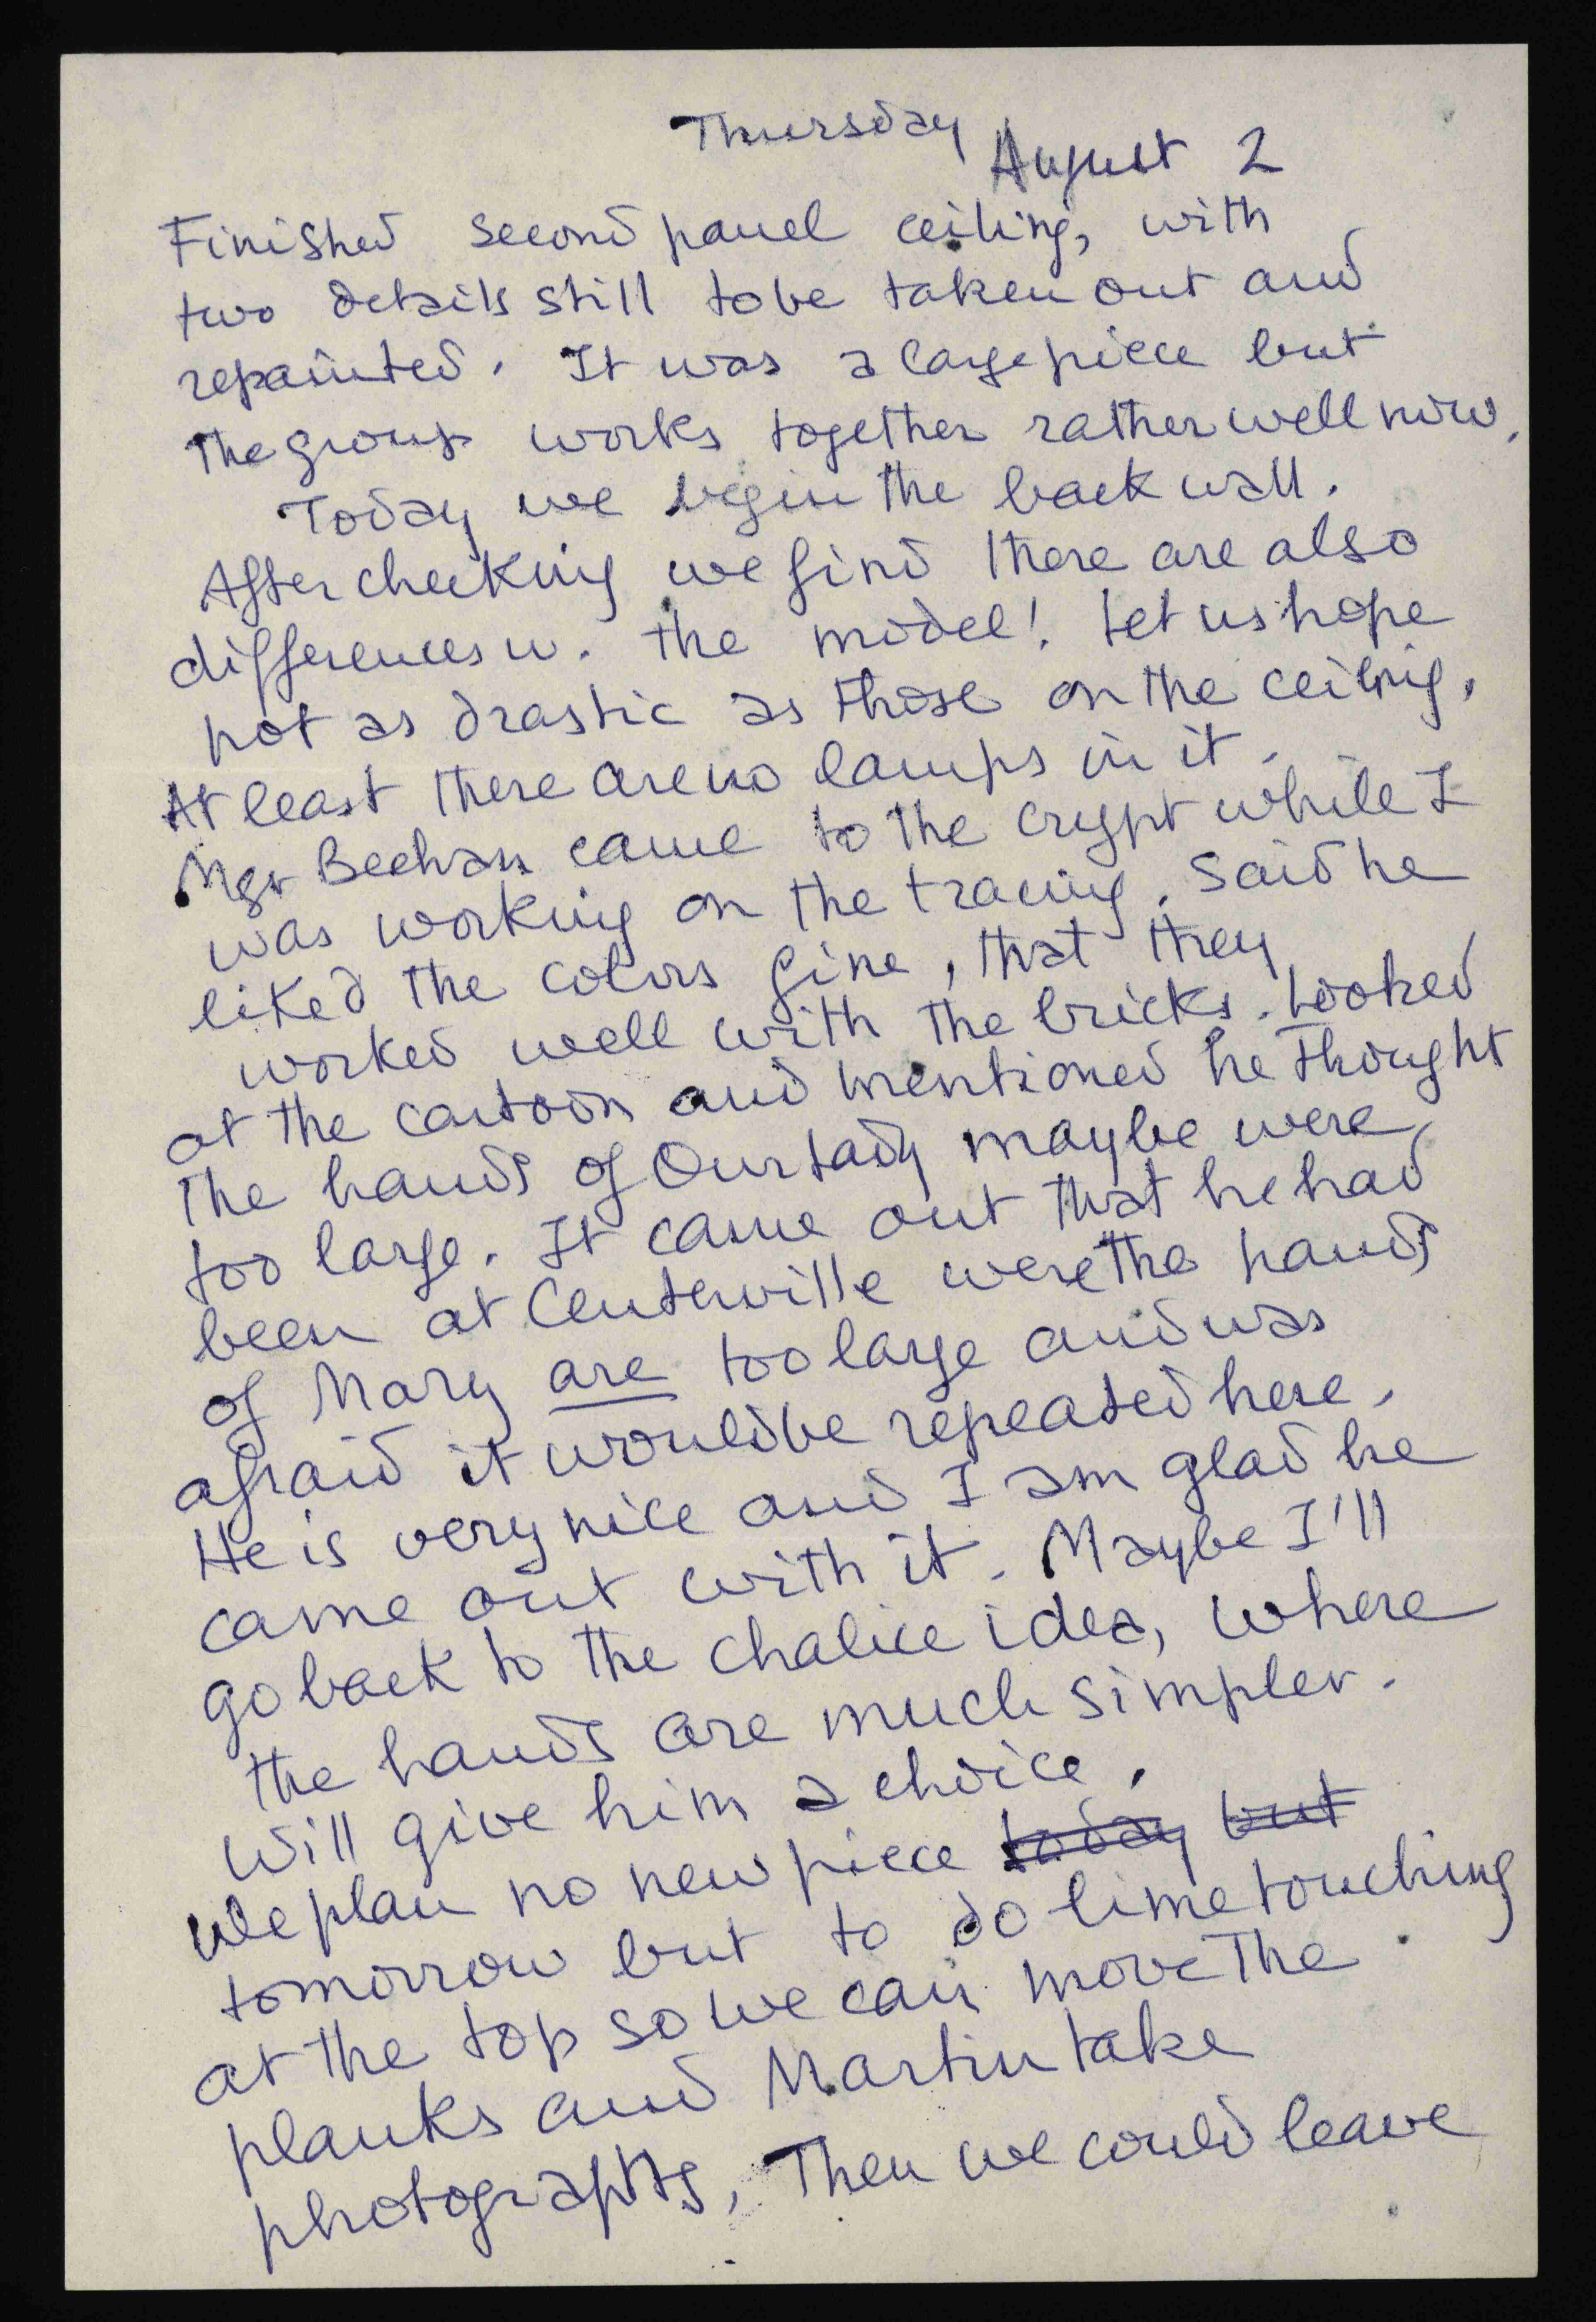 Thursday
August 2
Finished second panel ceiling, with
two details still to be taken out and
repainted. It was a large piece but
the group works together rather well now.
Today we begin the back wall.
After checking we find there are also
differences w. the model! Let us hope
not as drastic as those on the ceiling.
At least there are no lamps in it.
Mgr Beehan came to the crypt while I
was working on the tracing. Said he
liked the colors fine, that they
worked well with the bricks. Looked
at the cartoon and mentioned he thought
the hands of Our Lady maybe were
too large. It came out that he had
been at Centerville were the hands
of Mary are too large and was
afraid it would be repeated here.
He is very nice and I am glad he
came out with it. Maybe I'll
go back to the chalice idea, where
the hands are much simpler.
Will give him a choice.
We plan no new piece today but
tomorrow but to do lime touching
at the top so we can move the
planks and Martin take
photographs, Then we could leave